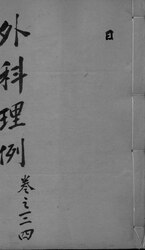 外科理例
卷之三四
日